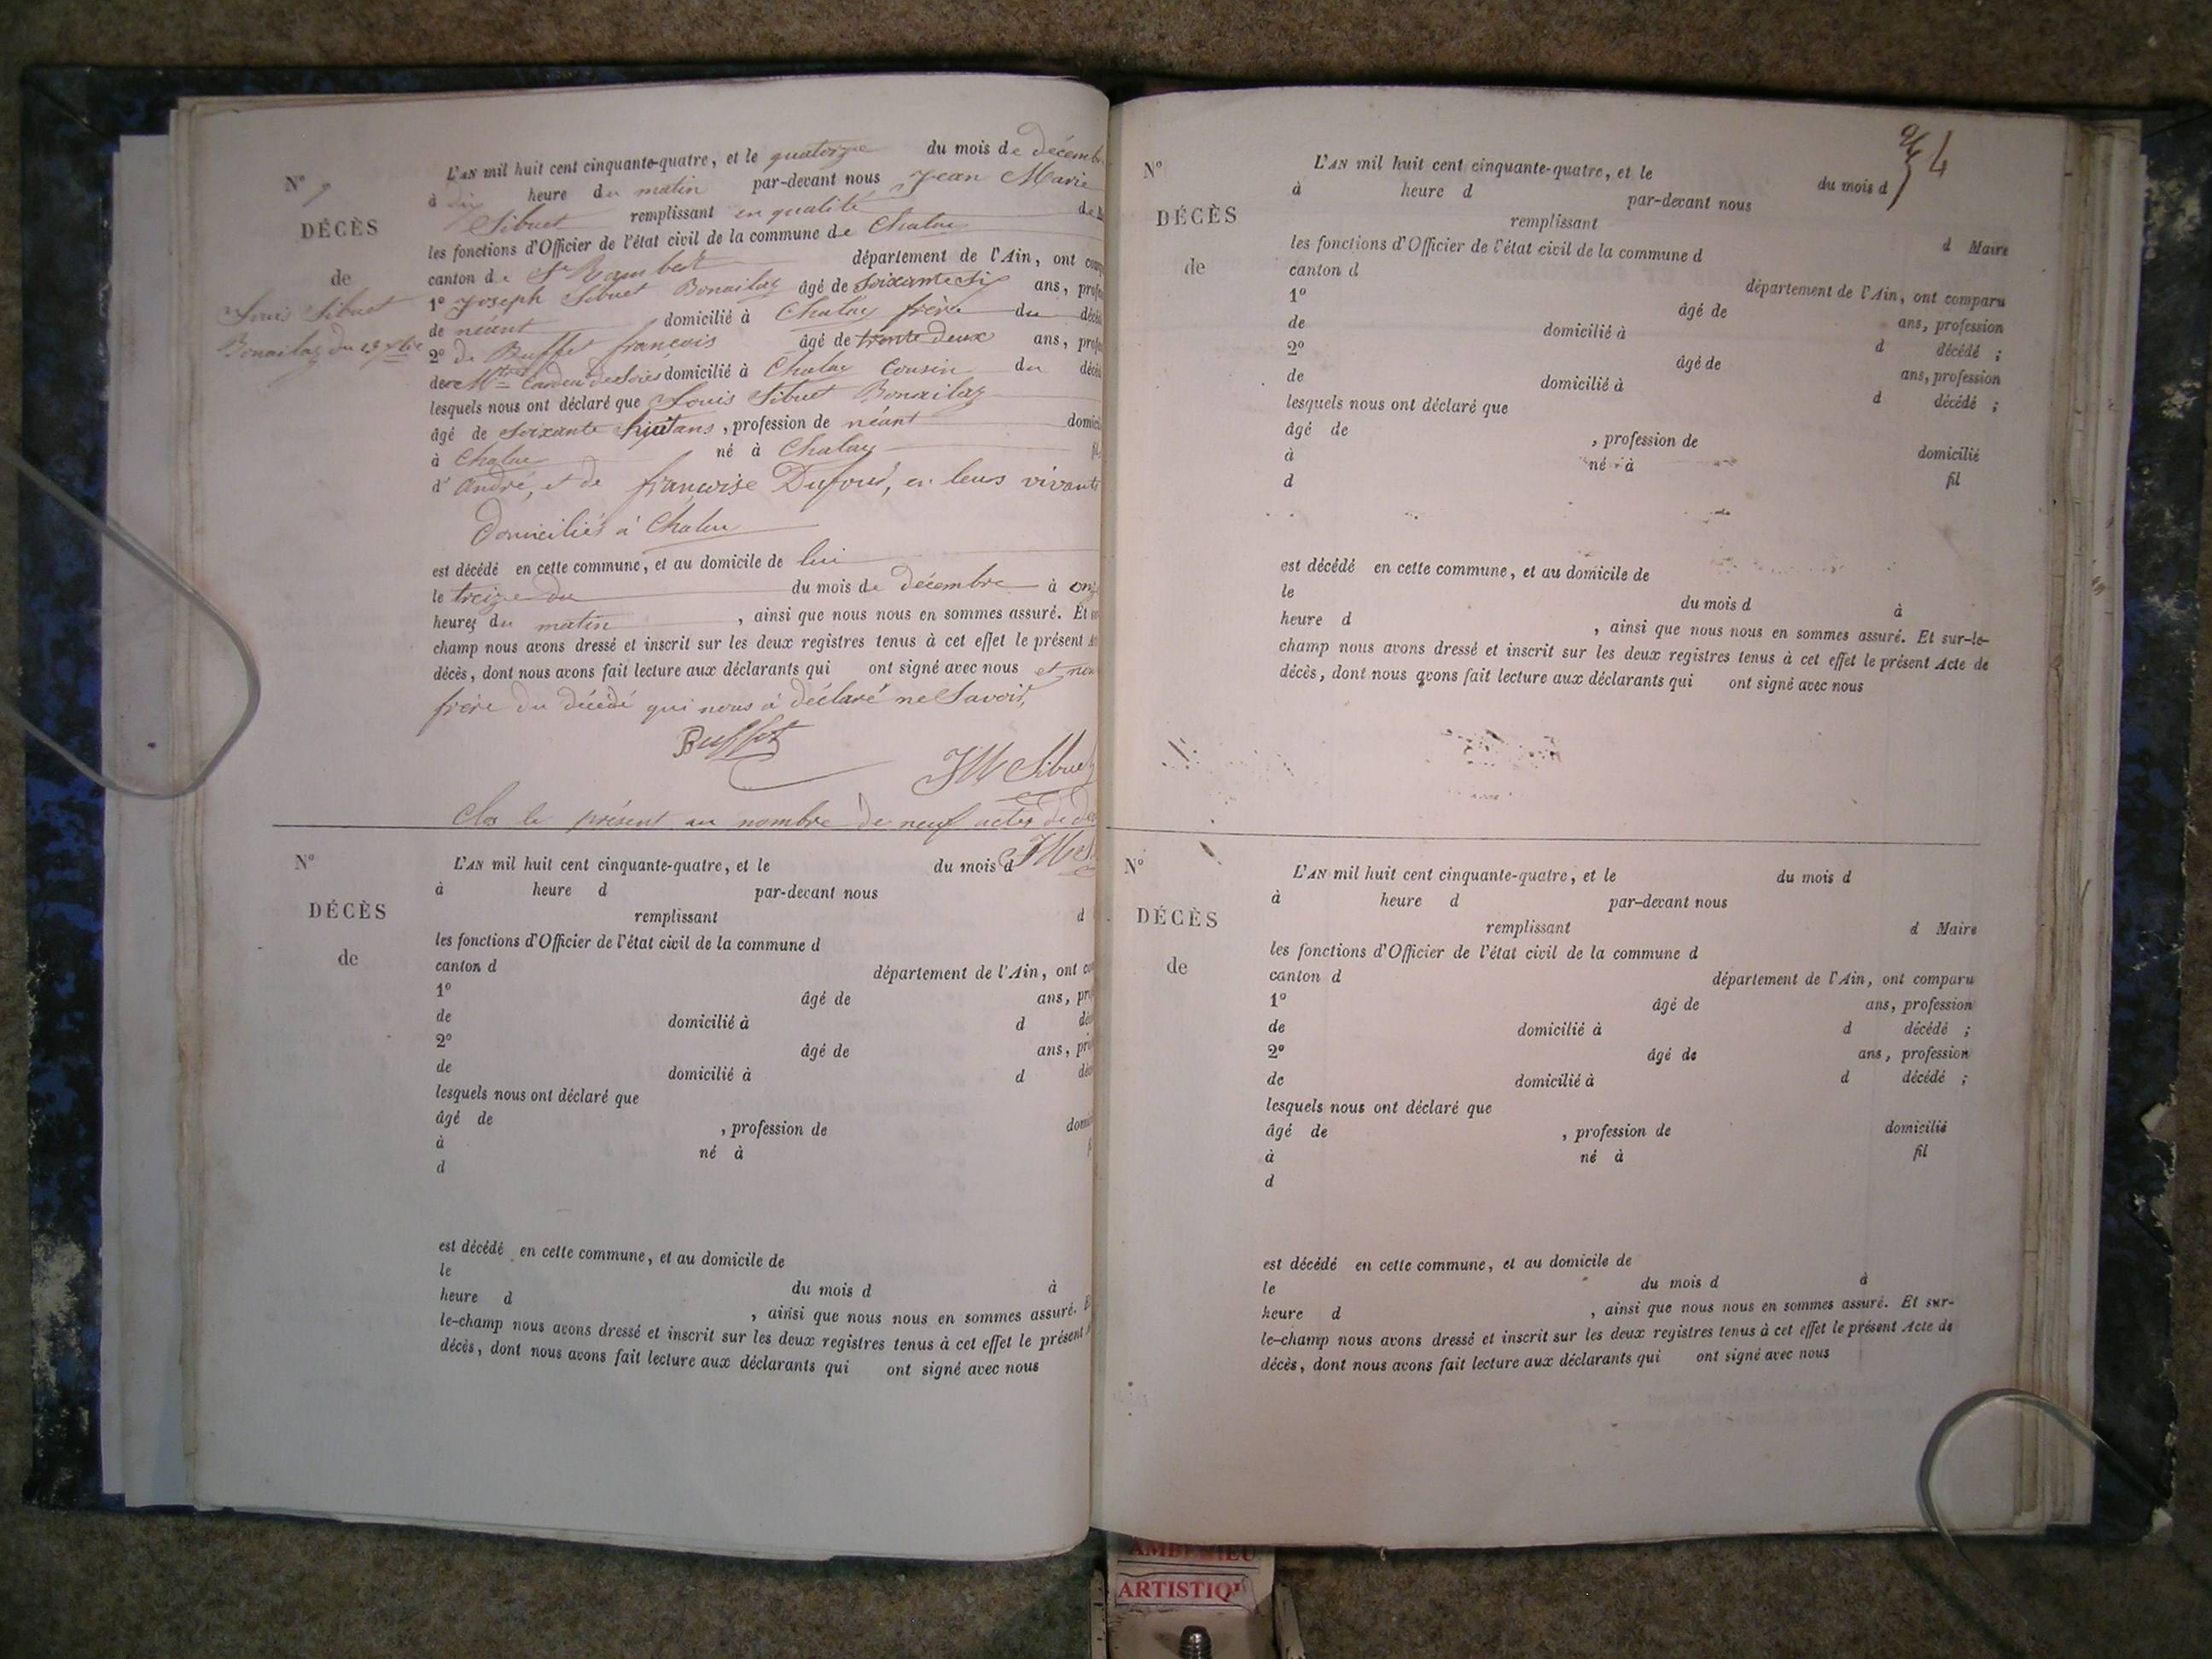 L'AN mil huit cent cinquante-quatre, et le quatorze du mois de décemb
N° 9
à dix heure du matin par-devant nous Jean Marie
Sibuet remplissant en qualité de
DÉCÈS
les fonctions d'Officier de l'état civil de la commune de Chaley
canton de St Rambert département de l'Ain, ont comp
de
1° Joseph Sibuet Bonailaz âgé de soixante six ans, prof
Louis Sibuet
de néant domicilié à Chaley frère du décéd
Bonailaz du 13 xbre
2° de Buffet françois âgé de trente deux ans, prof
de domicilié à Chaley cousin du décéd
lesquels nous ont déclaré que Louis Sibuet Bonailaz
âgé de soixante ans, profession de néant domici
à Chaley né à Chaley
d'André, et de françoise Dufour, en leurs vivants
Domiciliés à Chaley
est décédé en cette commune, et au domicile de lui
le treize du du mois de décembre à onz
heures du matin, ainsi que nous nous en sommes assuré. Et
champ nous avons dressé et inscrit sur les deux registres tenus à cet effet le présent
décès, dont nous avons fait lecture aux déclarants qui ont signé avec nous et non
frère du décédé qui nous a déclaré ne savoir,
Buffet
JM Sibuet
Clos le présent au nombre de neuf actes de dé
JM S
N°
L'AN mil huit cent cinquante-quatre, et le du mois d
à heure d par-devant nous
DÉCÈS
remplissant d
les fonctions d'Officier de l'état civil de la commune d
de
canton d département de l'Ain, ont co
1° âgé de ans, pro
de domicilié à d déc
2° âgé de ans, pro
de domicilié à d déc
lesquels nous ont déclaré que
âgé de , profession de domi
à né à
d
est décédé en cette commune, et au domicile de
le du mois d à
heure d , ainsi que nous nous en sommes assuré.
le-champ nous avons dressé et inscrit sur les deux registres tenus à cet effet le présent
décès, dont nous avons fait lecture aux déclarants qui ont signé avec nous
4
N°
L'AN mil huit cent cinquante-quatre, et le du mois d
à heure d par-devant nous
DÉCÈS
remplissant d Maire
les fonctions d'Officier de l'état civil de la commune d
de
canton d département de l'Ain, ont comparu
1° âgé de ans, profession
de domicilié à d décédé ;
2° âgé de ans, profession
de domicilié à d décédé ;
lesquels nous ont déclaré que
âgé de , profession de domicilié
à né à fil
d
est décédé en cette commune, et au domicile de
le du mois d à
heure d , ainsi que nous nous en sommes assuré. Et sur-le-
champ nous avons dressé et inscrit sur les deux registres tenus à cet effet le présent Acte de
décès, dont nous avons fait lecture aux déclarants qui ont signé avec nous
N°
L'AN mil huit cent cinquante-quatre, et le du mois d
à heure d par-devant nous
DÉCÈS
remplissant d Maire
les fonctions d'Officier de l'état civil de la commune d
de
canton d département de l'Ain, ont comparu
1° âgé de ans, profession
de domicilié à d décédé ;
2° âgé de ans, profession
de domicilié à d décédé ;
lesquels nous ont déclaré que
âgé de , profession de domicilié
à né à fil
d
est décédé en cette commune, et au domicile de
le du mois d à
heure d , ainsi que nous nous en sommes assuré. Et sur-
le-champ nous avons dressé et inscrit sur les deux registres tenus à cet effet le présent Acte de
décès, dont nous avons fait lecture aux déclarants qui ont signé avec nous
ARTISTIQ